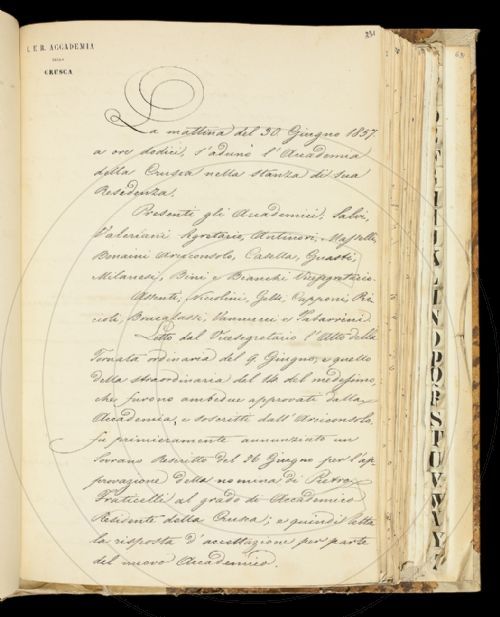 231
I. E R. ACCADEMIA
DELLA
CRUSCA
La mattina del 30. Giugno 1857.
a ore dodici, s'adunò l'Accademia
della Crusca nella stanza di sua
Residenza.
Presenti gli Accademici, Salvi,
Valeriani Segretario, Antinori, Masselli,
Bonaini Arciconsolo, Casella, Guasti,
Milanesi, Bini e Bianchi Vicesegretario.
Assenti, Nicolini, Gelli, Capponi, Ri-
coli, Brucalassi, Vannucci e Tabarrini.
Letto dal Vicesegretario l'Atto della
Tornata ordinaria del 9. Giugno, e quello
della straordinaria del 14. del medesimo,
che furono ambedue approvati dalla
Accademia, e soscritti dall'Arciconsolo,
fu primieramente annunziato un
Sovrano Rescritto del 26 Giugno per l'ap-
provazione della nomina di Pietro
Fraticelli al grado di Accademico
Residente della Crusca; e quindi letta
la risposta d'accettazione per parte
del nuovo Accademico.